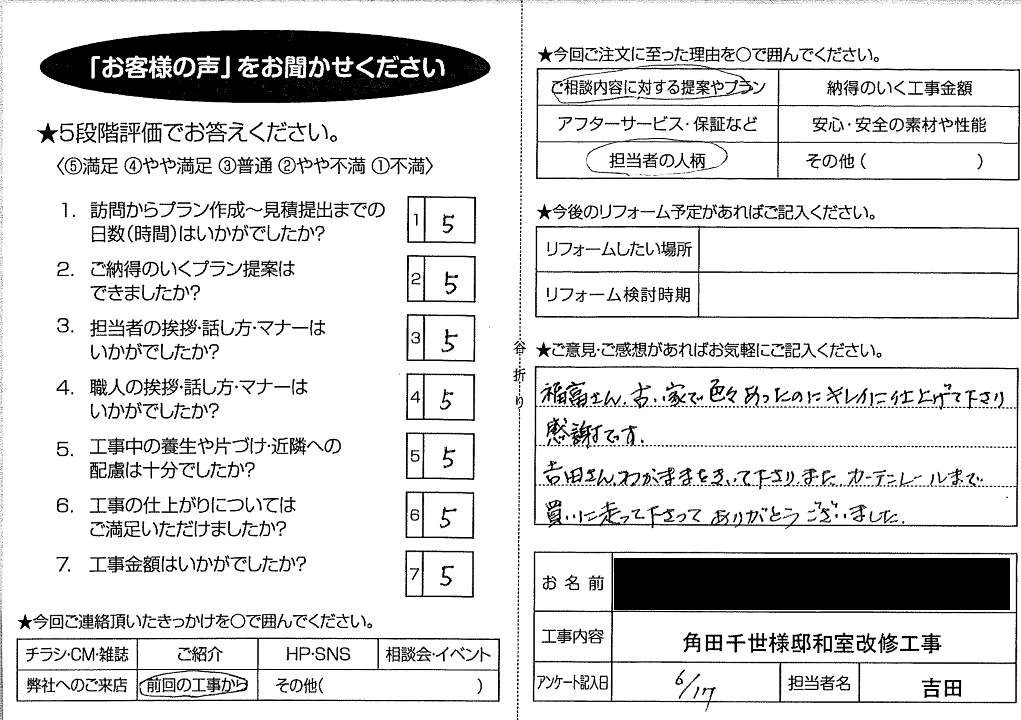 「お客様の声」をお聞かせください
★5段階評価でお答えください。
〈⑤満足 ④やや満足 ③普通 ②やや不満 ①不満〉
1. 訪問からプラン作成〜見積提出までの
日数(時間)はいかがでしたか?
1 5
2. ご納得のいくプラン提案は
できましたか?
2 5
3. 担当者の挨拶・話し方・マナーは
いかがでしたか?
3 5
4. 職人の挨拶・話し方・マナーは
いかがでしたか?
4 5
5. 工事中の養生や片づけ・近隣への
配慮は十分でしたか?
5 5
6. 工事の仕上がりについては
ご満足いただけましたか?
6 5
7. 工事金額はいかがでしたか?
7 5
★今回ご連絡頂いたきっかけを○で囲んでください。
チラシ・CM・雑誌 ご紹介 HP・SNS 相談会・イベント
弊社へのご来店 前回の工事から その他( )
谷折り
★今回ご注文に至った理由を○で囲んでください。
ご相談内容に対する提案やプラン 納得のいく工事金額
アフターサービス・保証など 安心・安全の素材や性能
担当者の人柄 その他( )
★今後のリフォーム予定があればご記入ください。
リフォームしたい場所
リフォーム検討時期
★ご意見・ご感想があればお気軽にご記入ください。
福富さん、古い家で色々あったのにキレイに仕上げて下さり
感謝です.
吉田さん、わがままをきいて下さり、また、カーテンレールまで
買いに走って下さって ありがとうございました.
お名前
工事内容 角田千世様邸和室改修工事
アンケート記入日 6/17 担当者名 吉田